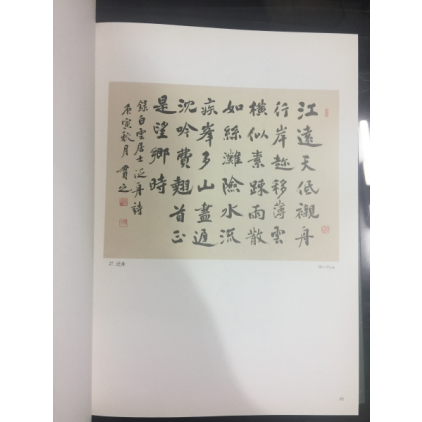 江遠天低襯舟
行岸趂移薄雲
橫似素疎雨散
如絲灘險水流
疾峯多山
沈吟費翹首正
是望鄉時
錄白雲居士泛舟詩
庚寅秋月 貫之
27.